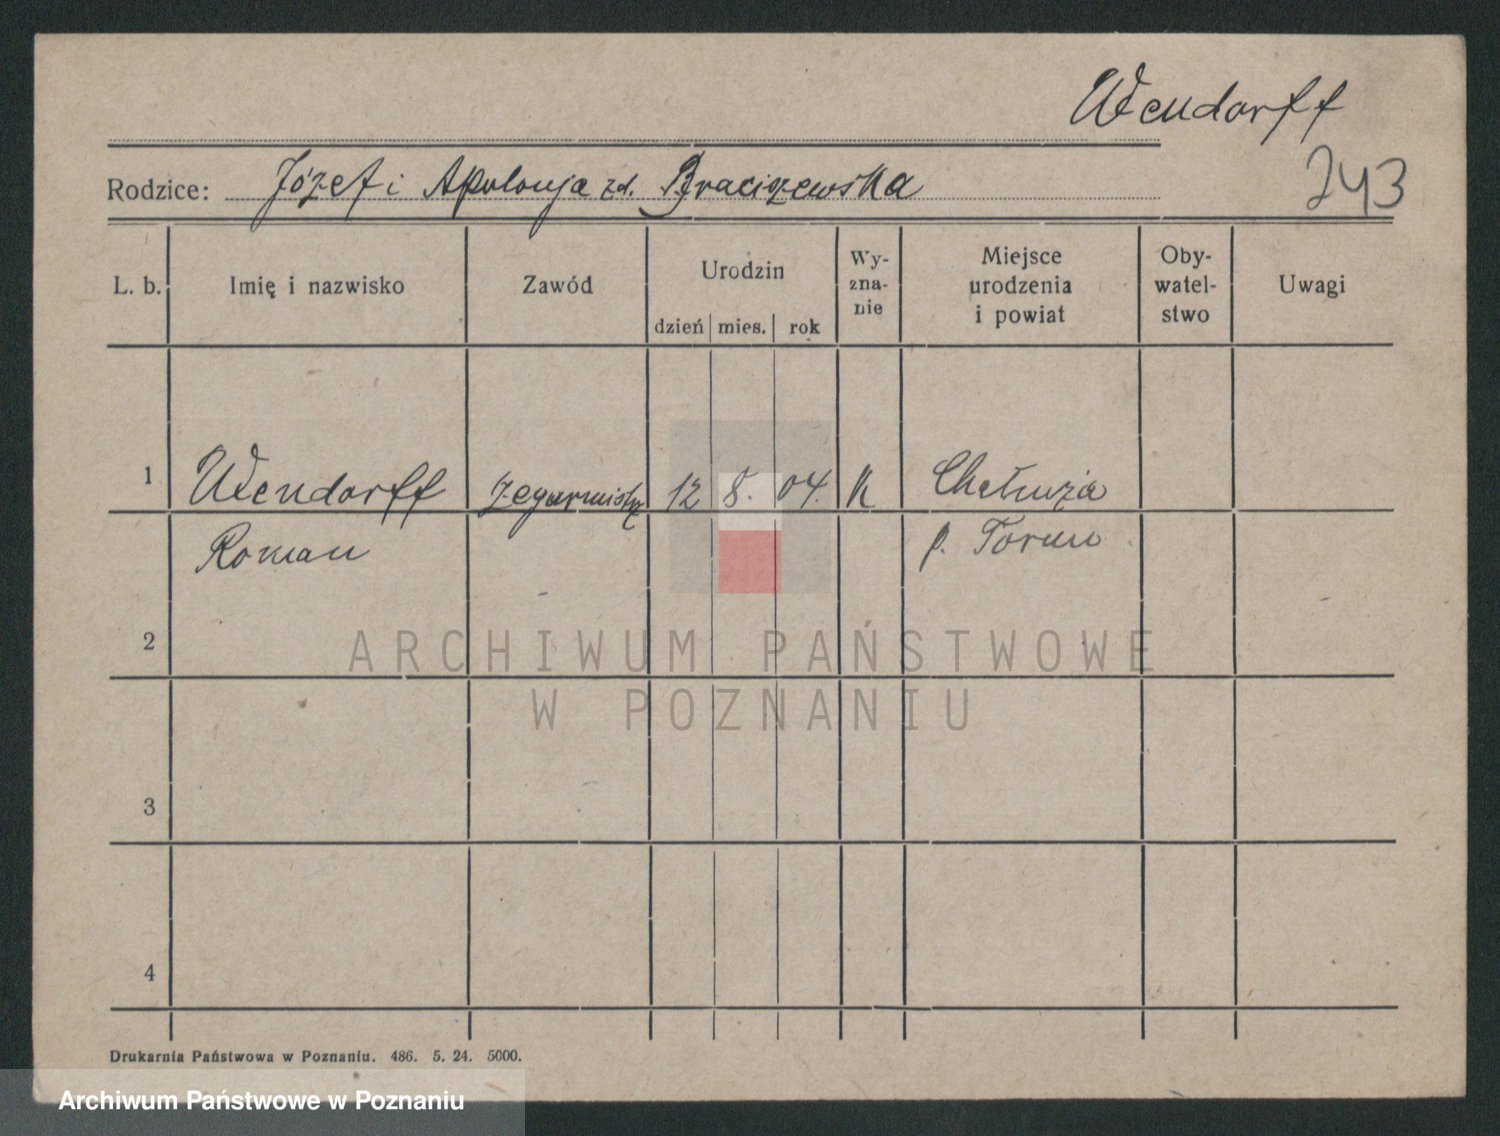 Wendorff
Rodzice: Józef i Apolonja zd. Braciszewska
243
L. b. Imię i nazwisko Zawód Urodzin dzień mies. rok Wy-zna-nie Miejsce urodzenia i powiat Oby-watel-stwo Uwagi
1 Wendorff zegarmistrz 12 8. 04. K Chełmża
Roman p. Toruń
2
ARCHIWUM PAŃSTWOWE
W POZNANIU
3
4
Drukarnia Państwowa w Poznaniu. 486. 5. 24. 5000.
Archiwum Państwowe w Poznaniu